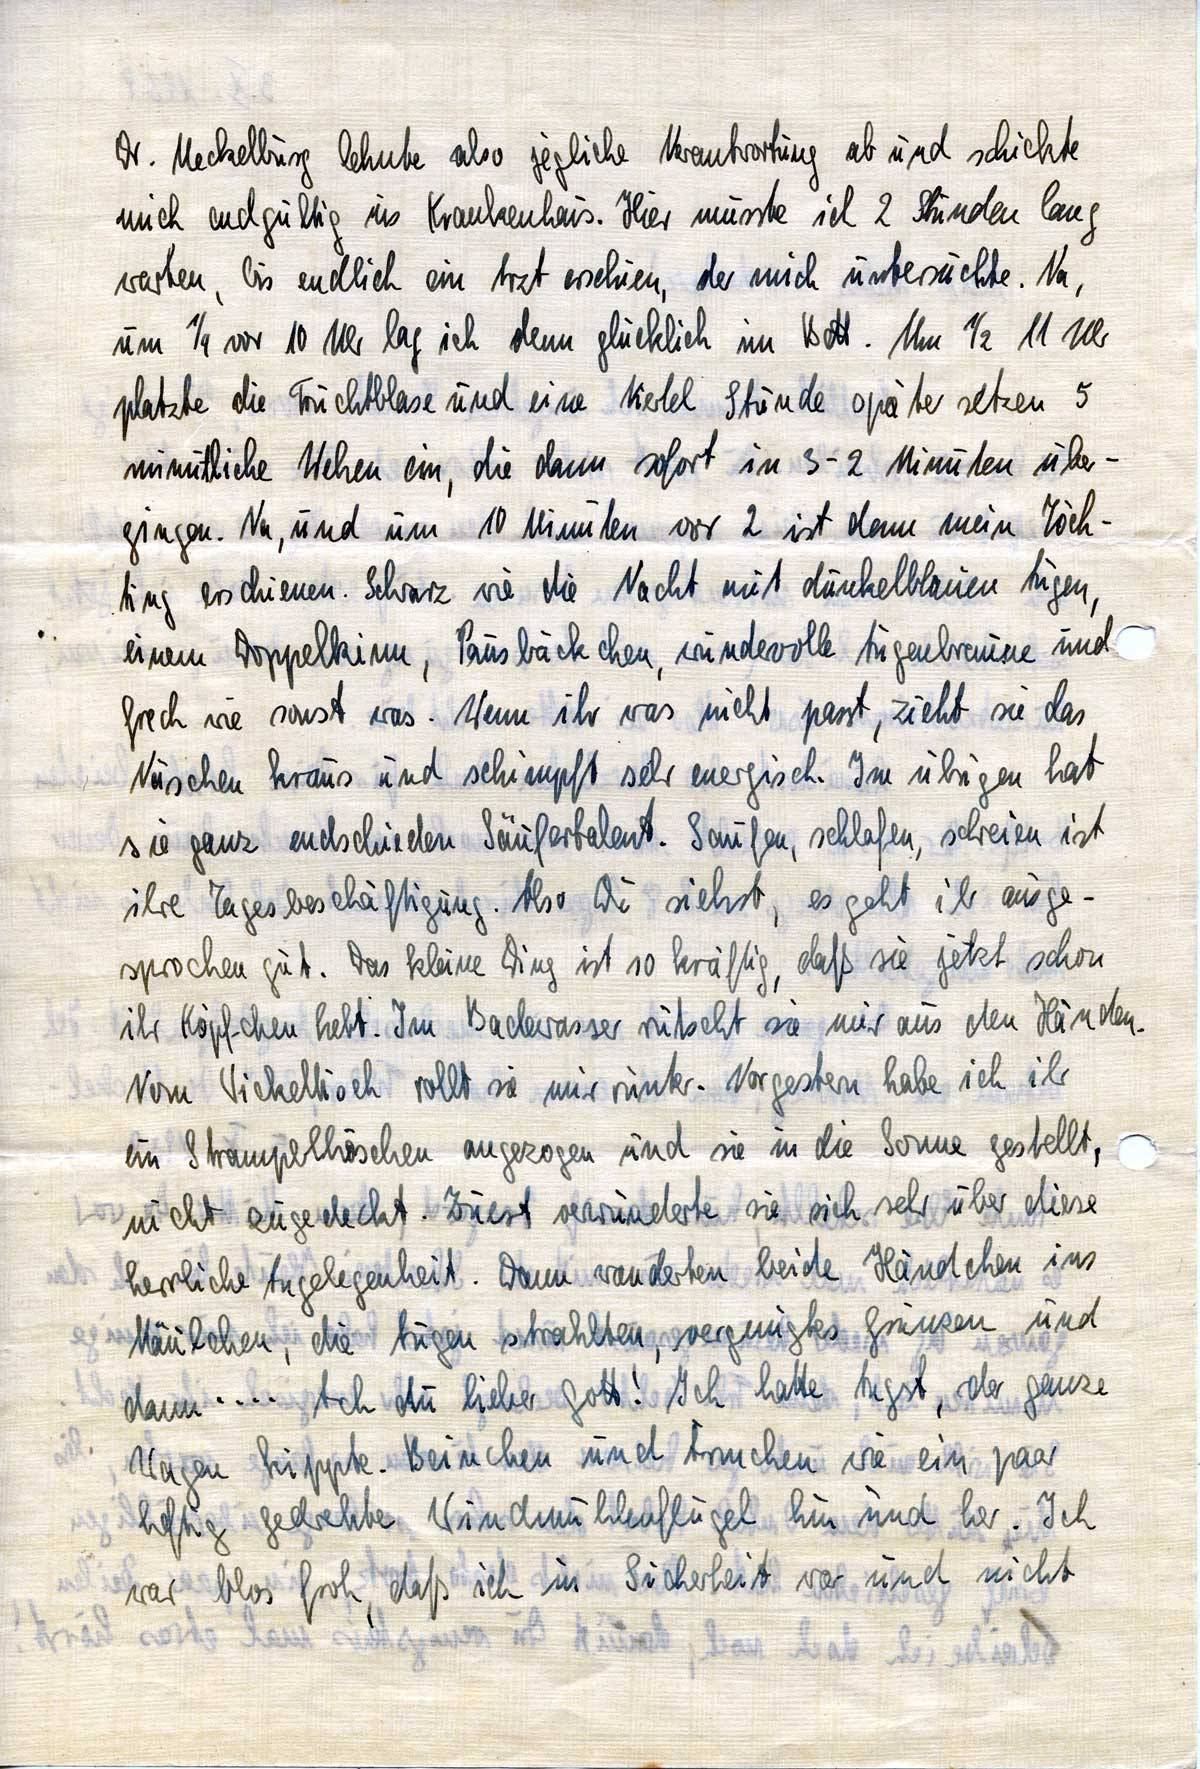 Dr. Meckelburg lehnte also jegliche Verantwortung ab und schickte
mich endgültig ins Krankenhaus. Hier musste ich 2 Stunden lang
warten, bis endlich ein Arzt erschien, der mich untersuchte. Na,
um 1/4 vor 10 Uhr lag ich denn glücklich im Bett. Um 1/2 11 Uhr
platzte die Fruchtblase und eine Viertel Stunde später setzen 5
minütliche Wehen ein, die dann sofort in 3-2 Minuten über-
gingen. Na, und um 10 Minuten vor 2 ist dann mein Töch-
ting erschienen. Schwarz wie die Nacht mit dunkelblauen Augen,
einem Doppelkinn, Pausbäckchen, wundevolle Augenbraune und
frech wie sonst was. Wenn ihr was nicht passt, zieht sie das
Näschen kraus und schimpft sehr energisch. Im übrigen hat
sie ganz endschieden Säufertalent. Saufen, schlafen, schreien ist
ihre Tagesbeschäftigung. Also Du siehst, es geht ihr ausge-
sprochen gut. Das kleine Ding ist so kräftig, daß sie jetzt schon
ihr Köpfchen hebt. Im Badewasser rutscht sie mir aus den Händen.
Vom Wickeltisch rollt sie mir runter. Vorgestern habe ich ihr
ein Strampelhöschen angezogen und sie in die Sonne gestellt,
nicht zugedeckt. Zuerst verwunderte sie sich sehr über diese
herrliche Angelegenheit. Dann wanderten beide Händchen ins
Mäulchen, die Augen strahlten, vergnügtes Grunzen und
dann .... Ach du lieber Gott! Ich hatte Angst, der ganze
Wagen kippte. Beinchen und Ärmchen wie ein paar
heftig gedrehte Windmühlenflügel hin und her. Ich
war blos froh, daß ich in Sicherheit war und nicht